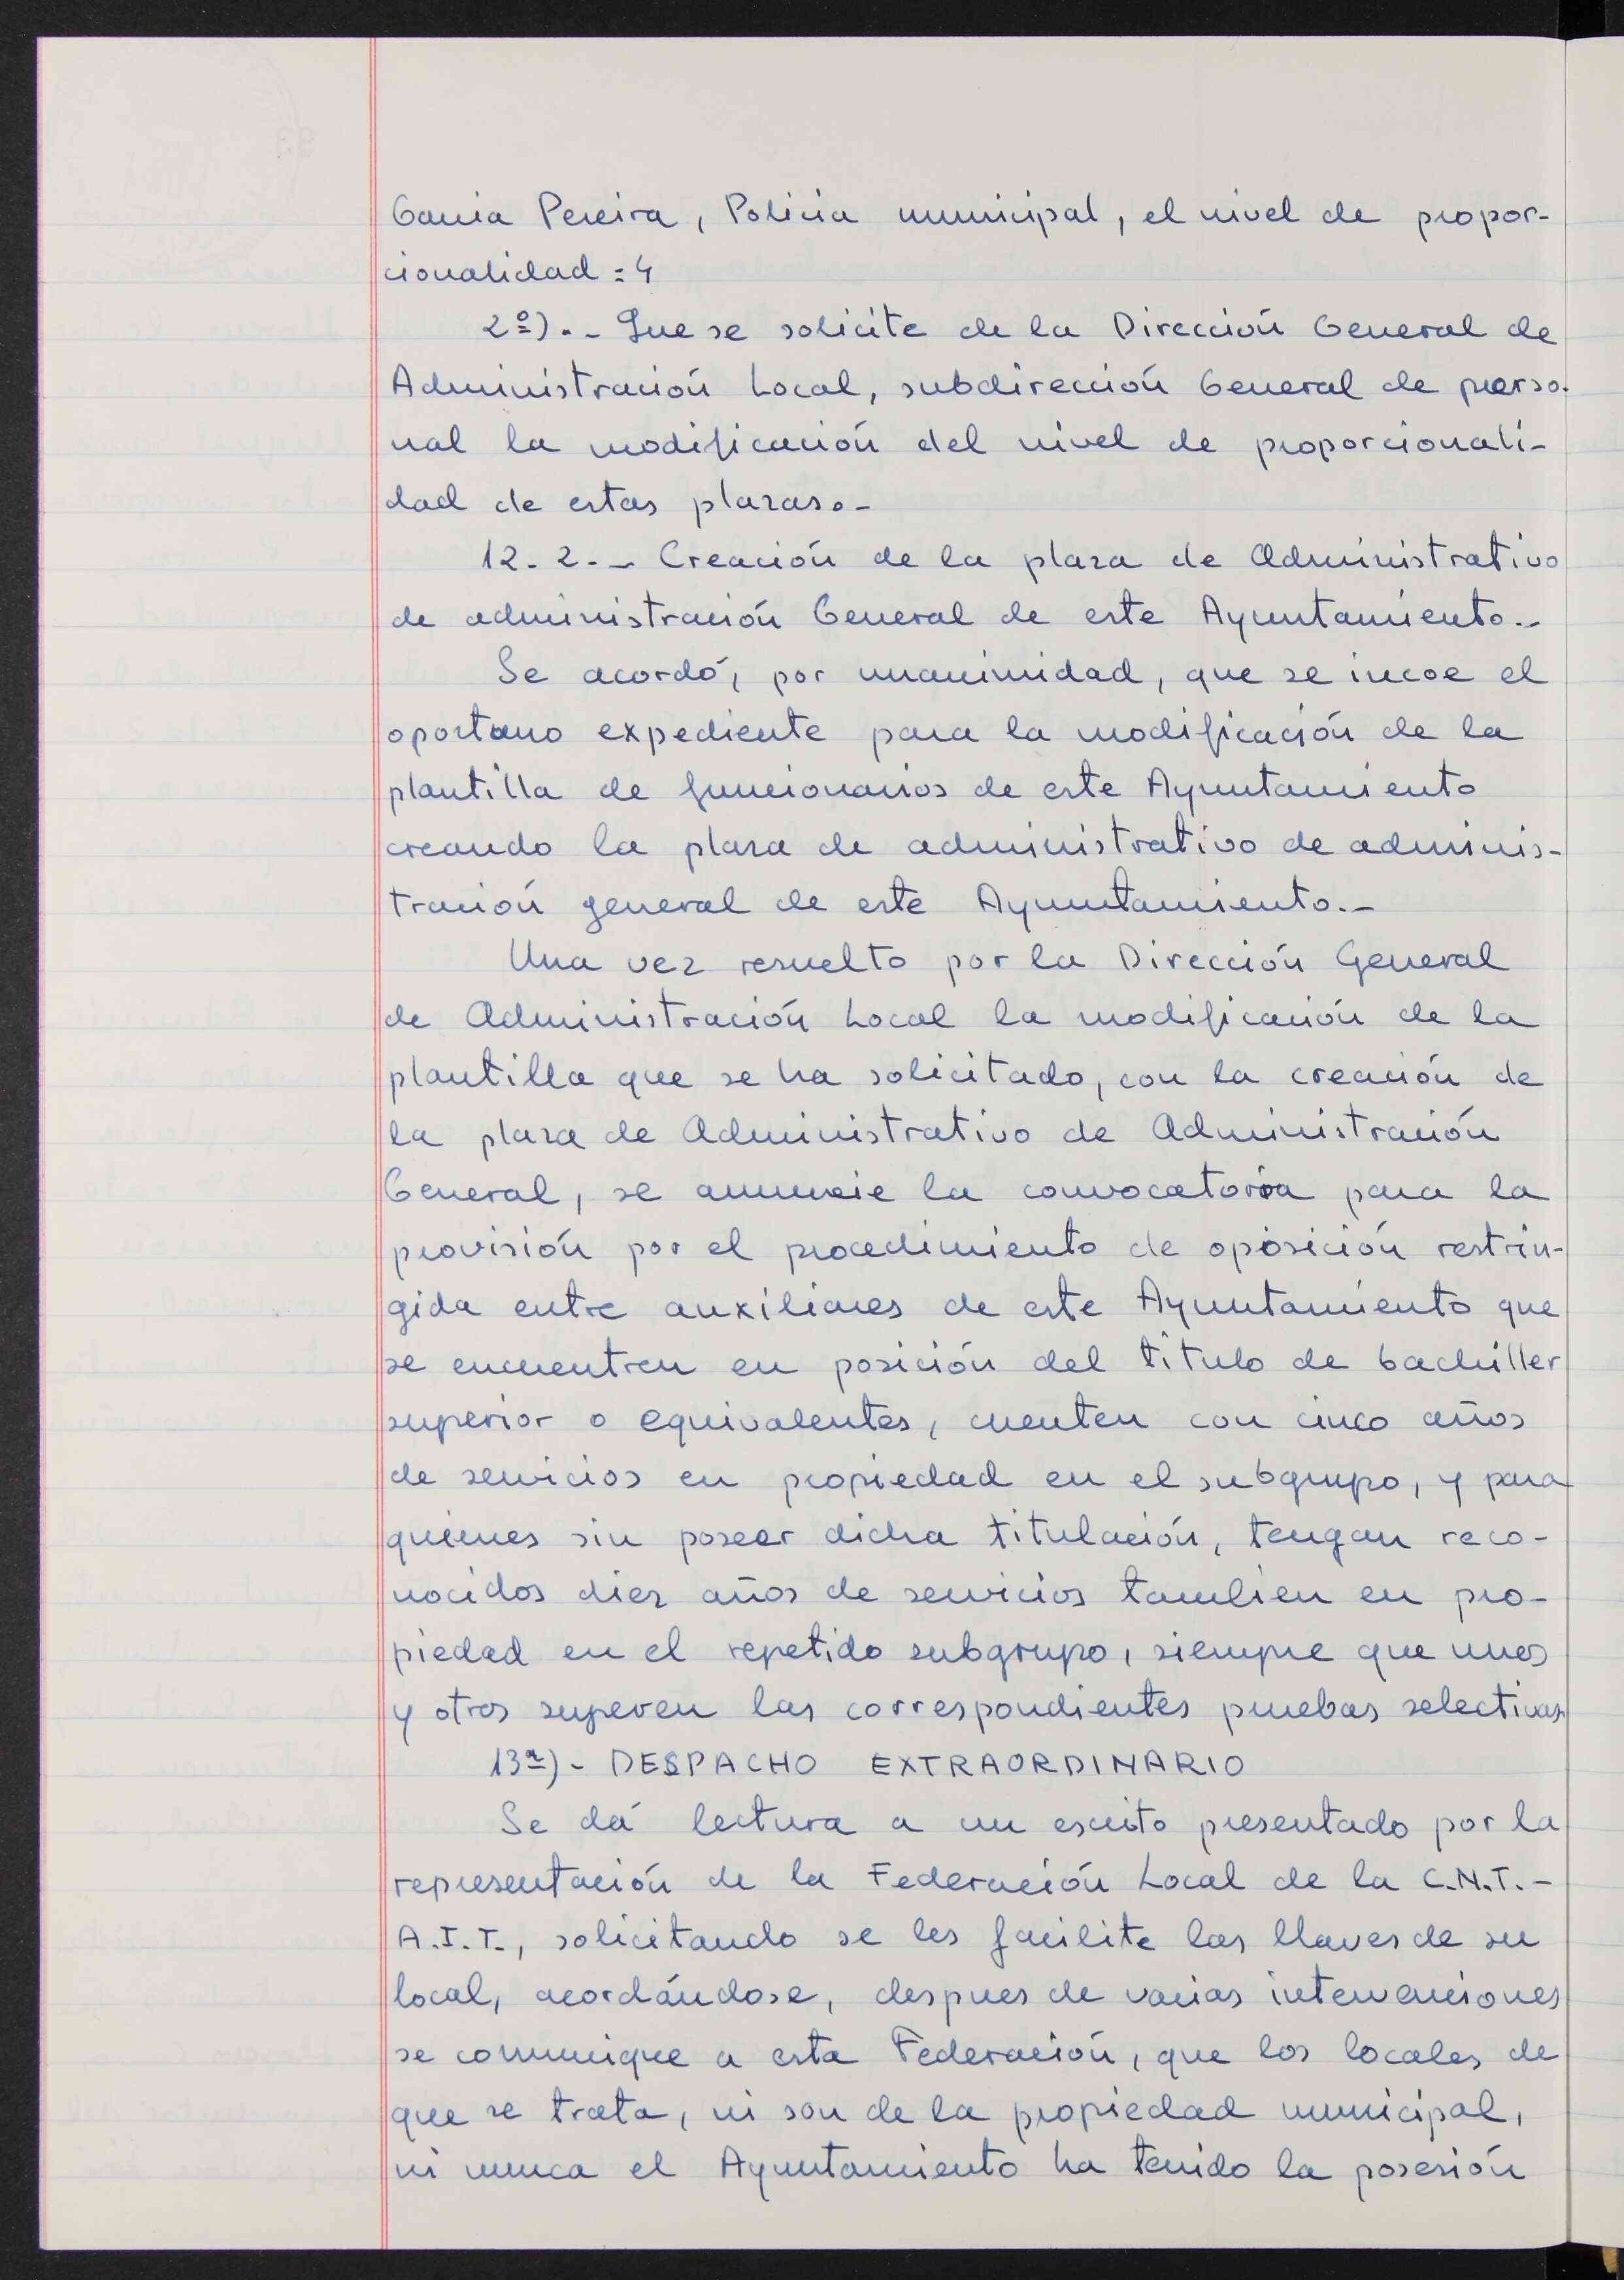 Garcia Pereira, Policia municipal, el nivel de propor-
cionalidad = 4
2º).- Que se solicite de la Dirección General de
Administración Local, subdirección General de perso-
nal la modificación del nivel de proporcionali-
dad de estas plazas.-
12.2.- Creación de la plaza de Administrativo
de administración General de este Ayuntamiento.-
Se acordó, por unanimidad, que se incoe el
oportuno expediente para la modificación de la
plantilla de funcionarios de este Ayuntamiento
creando la plaza de administrativo de adminis-
tración general de este Ayuntamiento.-
Una vez resuelto por la Dirección General
de Administración Local la modificación de la
plantilla que se ha solicitado, con la creación de
la plaza de Administrativo de Administración
General, se anuncie la convocatoria para la
provisión por el procedimiento de oposición restrin-
gida entre auxiliares de este Ayuntamiento que
se encuentren en posición del titulo de bachiller
superior o equivalentes, cuenten con cinco años
de servicios en propiedad en el subgrupo, y para
quienes sin poseer dicha titulación, tengan reco-
nocidos diez años de servicios tambien en pro-
piedad en el repetido subgrupo, siempre que unos
y otros superen las correspondientes pruebas selectivas.
13ª)- DESPACHO EXTRAORDINARIO
Se dá lectura a un escrito presentado por la
representación de la Federación Local de la C.N.T.-
A.I.T., solicitando se les facilite las llaves de su
local, acordándose, despues de varias intervenciones
se comunique a esta Federación, que los locales de
que se trata, ni son de la propiedad municipal,
ni nunca el Ayuntamiento ha tenido la posesión